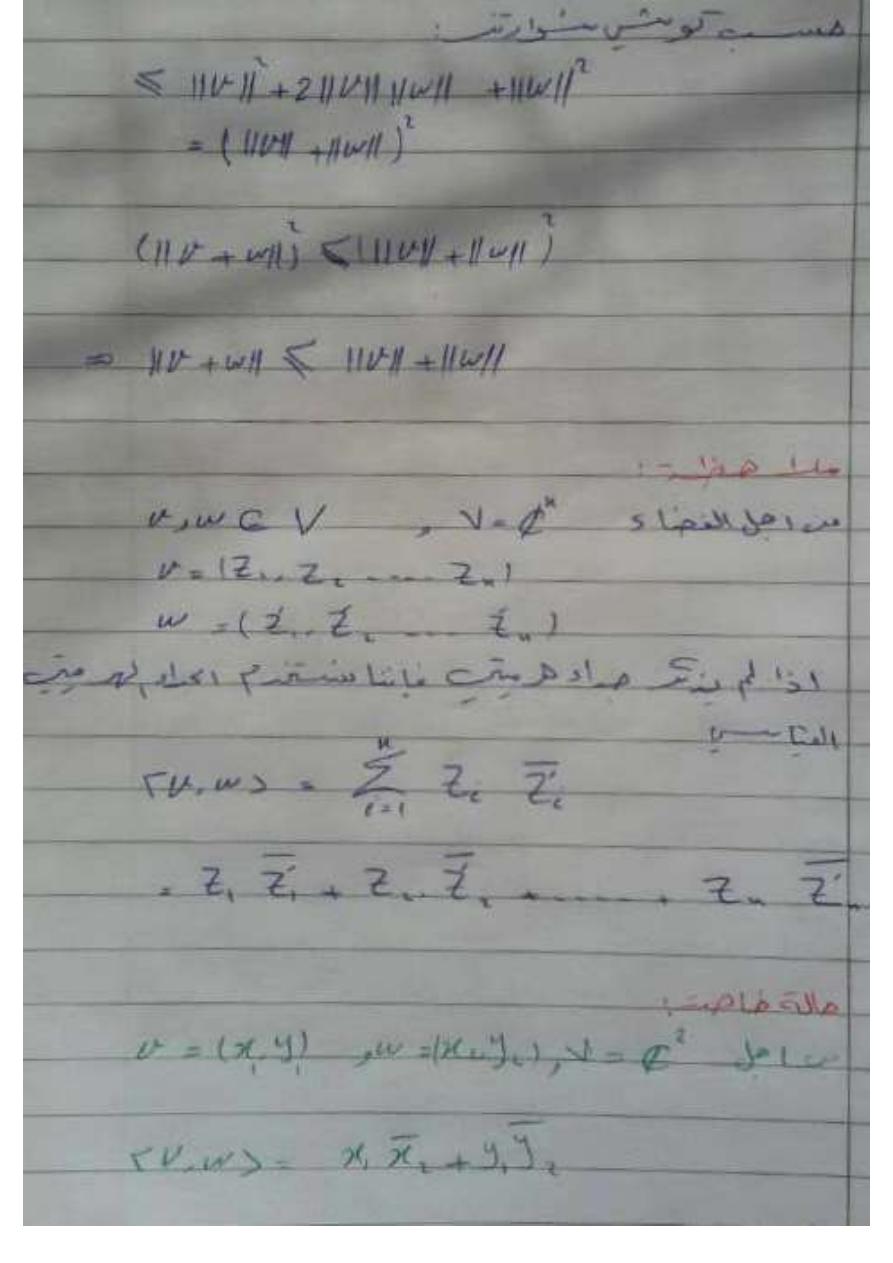 حسب كوشي شوارتز:
≤ ||v||² + 2||v|| ||w|| + ||w||²
= (||v|| + ||w||)²
(||v + w||)² ≤ (||v|| + ||w||)²
⇒ ||v + w|| ≤ ||v|| + ||w||
ملاحظة:
من اجل الفضاء V = ₵ⁿ , v, w ∈ V
v = (Z₁, Z₂ ---- Zₙ)
w = (Ź₁, Ź₂ ---- Źₙ)
اذا لم يذكر جداء هرميتي فإننا نستخدم الجداء الهرميتي
القياسي
<v, w> = Σⁿᵢ₌₁ Zᵢ Z̅'ᵢ
= Z₁ Z̅'₁ + Z₂ Z̅'₂ + ------ + Zₙ Z̅'ₙ
حالة خاصة:
من اجل V = ₵² , w = (x₂, y₂) , v = (x₁, y₁)
<v, w> = x₁ x̅₂ + y₁ y̅₂